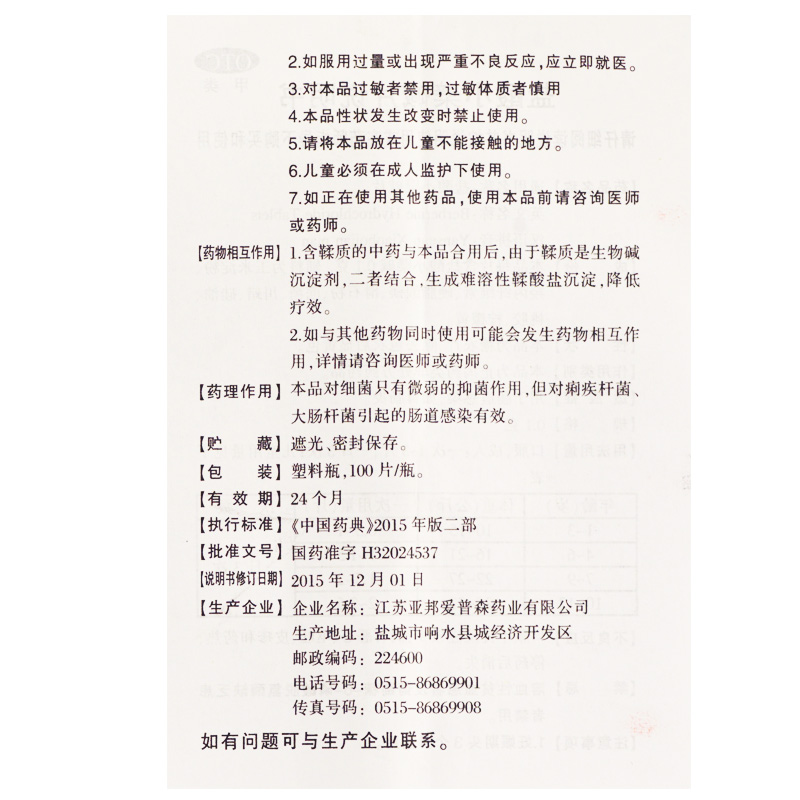 2.如服用过量或出现严重不良反应,应立即就医。
3.对本品过敏者禁用,过敏体质者慎用
4.本品性状发生改变时禁止使用。
5.请将本品放在儿童不能接触的地方。
6.儿童必须在成人监护下使用。
7.如正在使用其他药品,使用本品前请咨询医师
或药师。
【药物相互作用】 1.含鞣质的中药与本品合用后,由于鞣质是生物碱
沉淀剂,二者结合,生成难溶性鞣酸盐沉淀,降低
疗效。
2.如与其他药物同时使用可能会发生药物相互作
用,详情请咨询医师或药师。
【药理作用】 本品对细菌只有微弱的抑菌作用,但对痢疾杆菌、
大肠杆菌引起的肠道感染有效。
【贮 藏】 遮光、密封保存。
【包 装】 塑料瓶,100片/瓶。
【有 效 期】 24个月
【执行标准】 《中国药典》2015年版二部
【批准文号】 国药准字 H32024537
【说明书修订日期】 2015年12月01日
【生产企业】 企业名称: 江苏亚邦爱普森药业有限公司
生产地址: 盐城市响水县城经济开发区
邮政编码: 224600
电话号码: 0515-86869901
传真号码: 0515-86869908
如有问题可与生产企业联系。